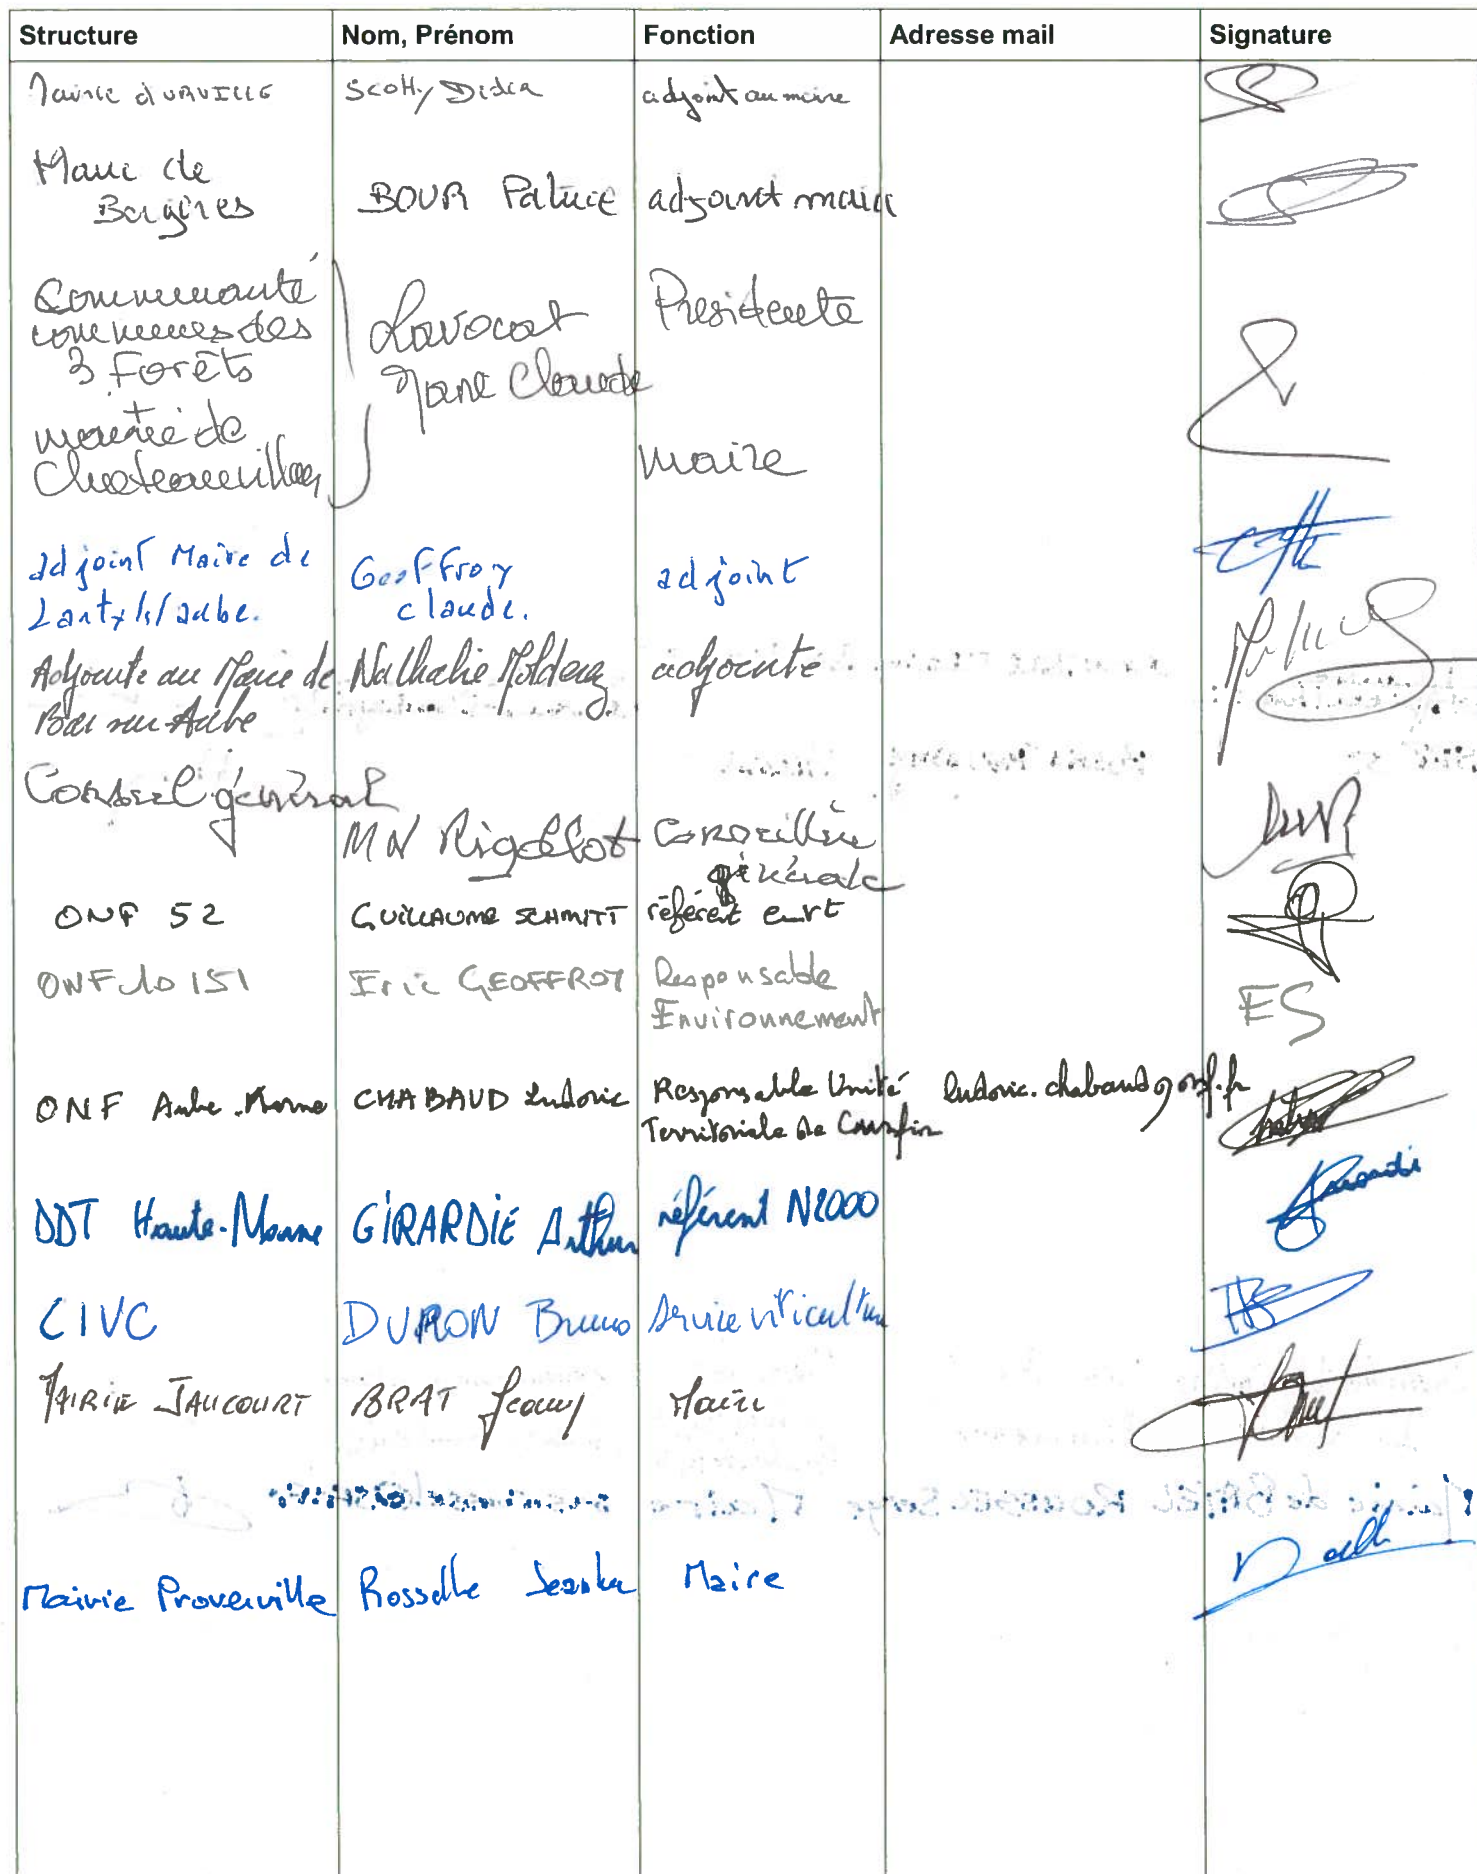 Structure Nom, Prénom Fonction Adresse mail Signature
Mairie d'URVILLE Scotty Didier adjoint au maire
Maire de
Bergères BOUR Patrice adjoint maire
Communauté
communes des
3 Forêts
+
mairie de
Chateauvillain
Lavocat
Marie Claude
Presidente
maire
adjoint Maire de
Lanty/s/aube.
Geoffroy
claude.
adjoint
Adjointe au Maire de
Bar sur Aube
Nathalie
adjointe
Conseil général
MN Rigollot Conseillère
générale
ONF 52 GUILLAUME SCHMITT référent envt
ONF 10 151 Eric GEOFFROY Responsable
Environnement
ES
ONF Aube-Marne CHABAUD Ludovic Responsable Unité
Territoriale de Cunfin
ludovic.chabaud@onf.fr
DDT Haute-Marne GIRARDIE Arthur référent N2000
CIVC DURON Bruno Service viticulture
MAIRIE JAUCOURT BRAT Maire
Mairie Proverville Rosselle Maire